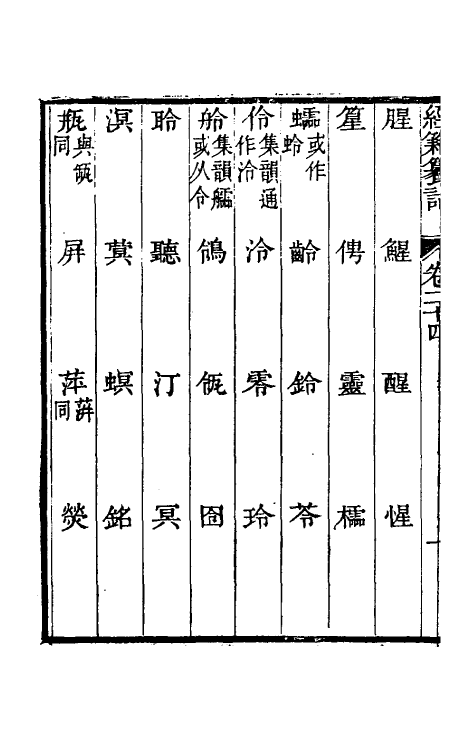 經籍籑詁 卷二十四 一
腥 鯹 醒 惺
篂 俜 靈 櫺
或作蛉 齡 鈴 苓
伶 集韻通作泠 泠 零 玲
舲 集韻 或从令 鴒 瓴 囹
聆 聽 汀 冥
溟 蓂 螟 銘
瓶 與缾同 屏 萍 蓱同 熒